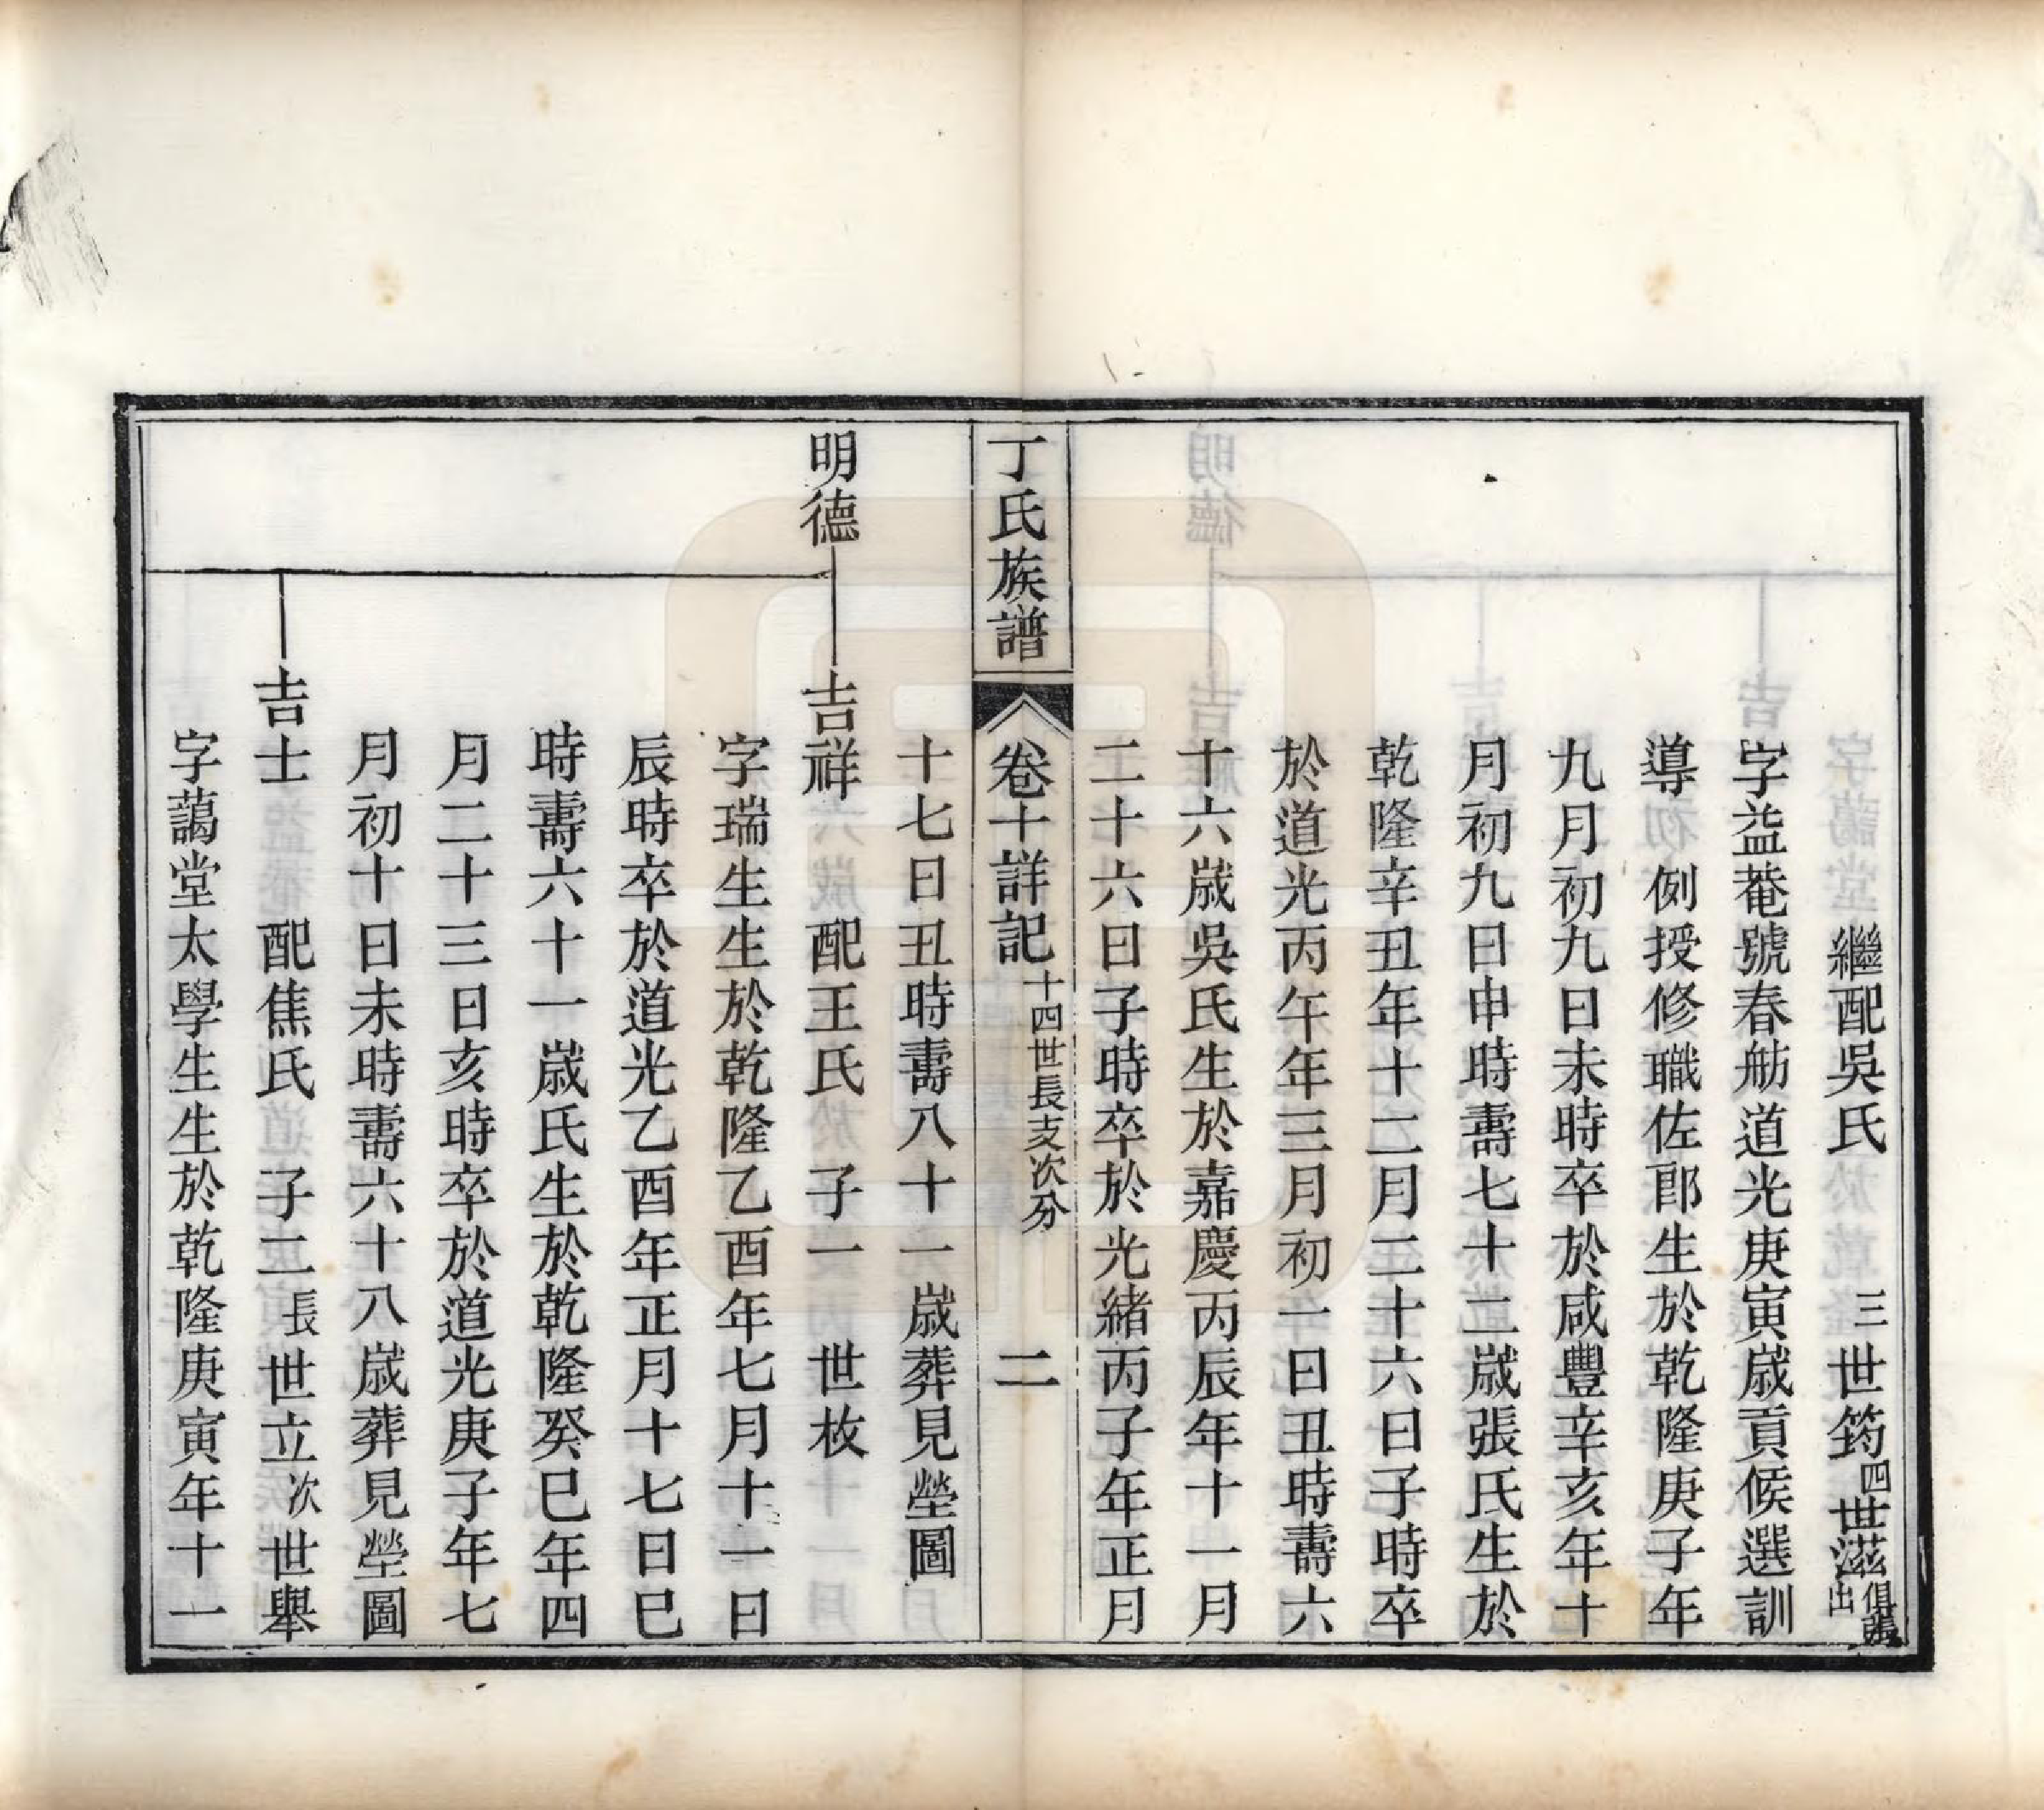 繼配吳氏　三世筠四世滋俱張出
字益菴號春舫道光庚寅歲貢候選訓
導　例授修職佐郎生於乾隆庚子年
九月初九日未時卒於咸豐辛亥年十
月初九日申時壽七十二歲張氏生於
乾隆辛丑年十二月二十六日子時卒
於道光丙午年三月初一日丑時壽六
十六歲吳氏生於嘉慶丙辰年十一月
二十六日子時卒於光緒丙子年正月
丁氏族譜　卷十詳記　十四世長支次分　二
十七日丑時壽八十一歲葬見塋圖
明德　吉祥　配王氏　子一　世枚
字瑞生生於乾隆乙酉年七月十一日
辰時卒於道光乙酉年正月十七日巳
時壽六十一歲氏生於乾隆癸巳年四
月二十三日亥時卒於道光庚子年七
月初十日未時壽六十八歲葬見塋圖
吉士　配焦氏　子二長世立次世舉
字藹堂太學生生於乾隆庚寅年十一